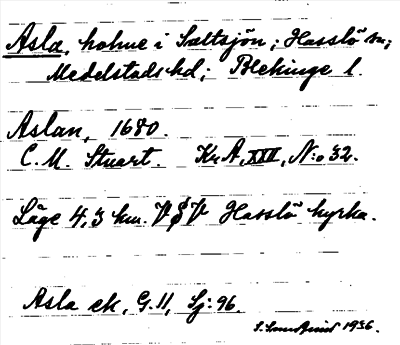 Asla, holme i Saltsjön; Hasslö sn;
Medelstads hd; Blekinge l.
Aslan, 1680.
C. M. Stuart. Kr A, XXII, N:o 32.
Läge 4,3 km. V S V Hasslö kyrka.
Asla ek, G. 11, Sj: 96.
1936